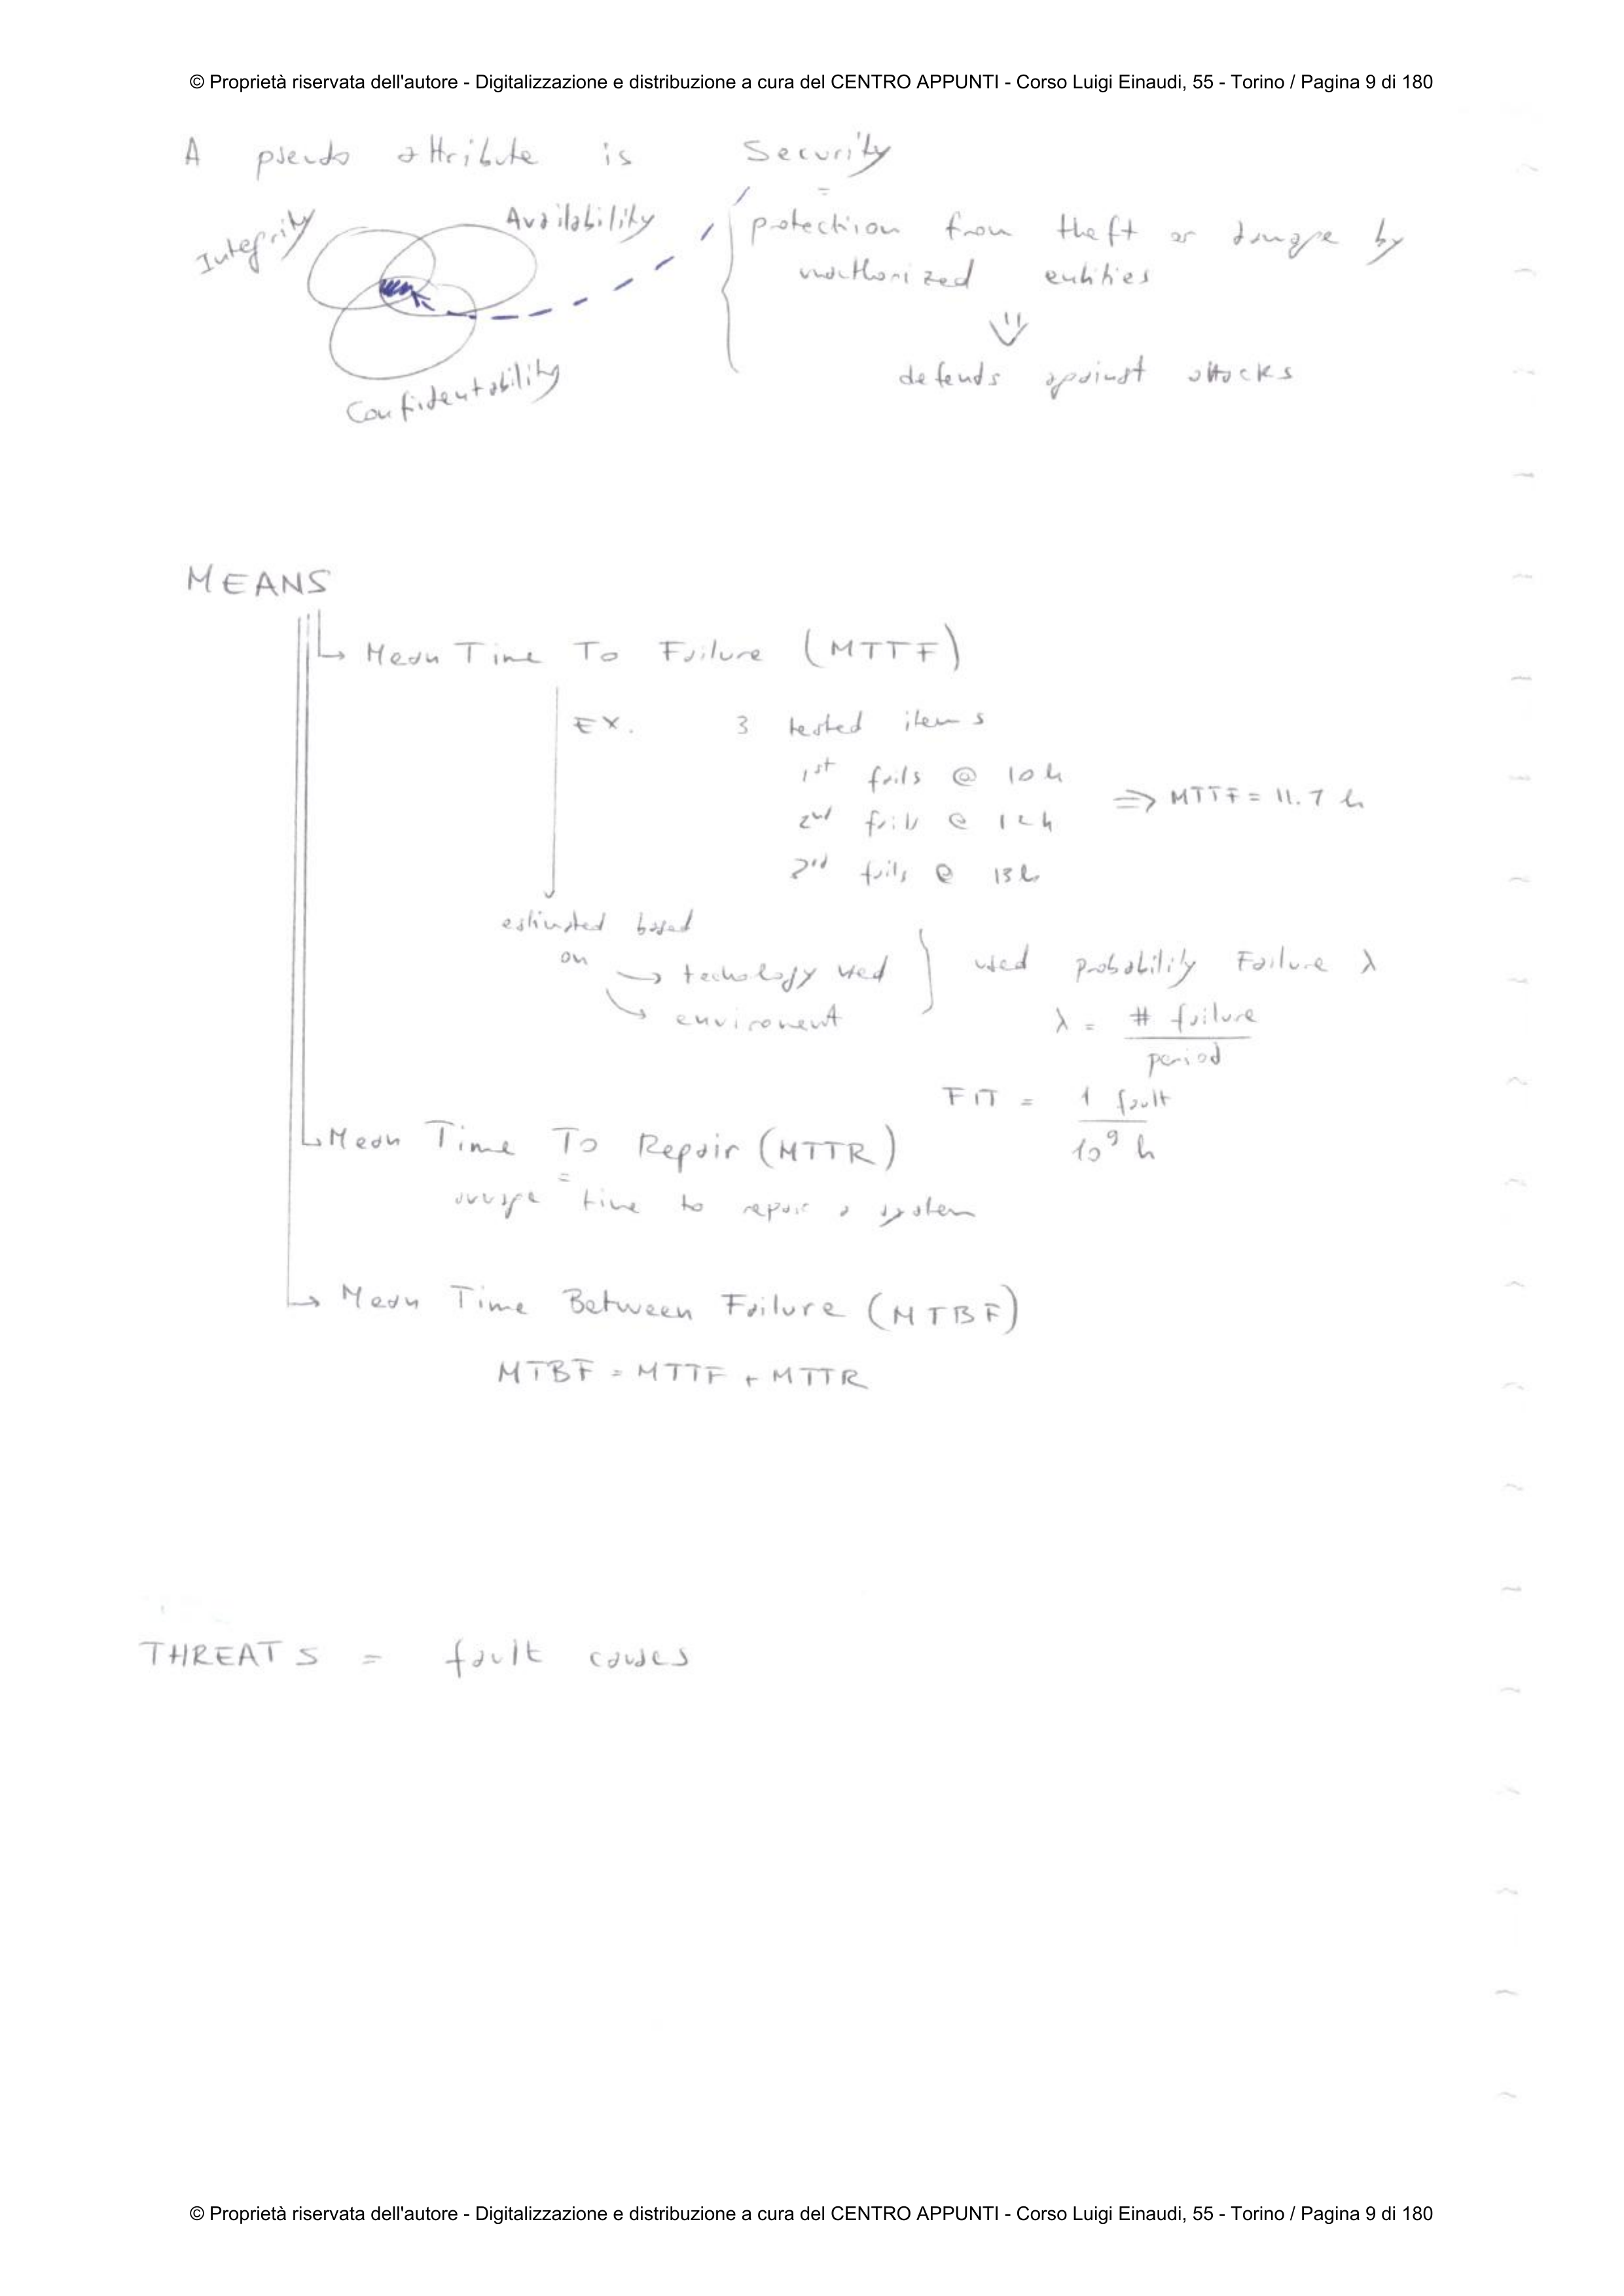 © Proprietà riservata dell'autore - Digitalizzazione e distribuzione a cura del CENTRO APPUNTI - Corso Luigi Einaudi, 55 - Torino / Pagina 9 di 180
A pseudo attribute is Security
=
Integrity
Availability
Confidentability
protechion from theft or damage by
unothorized entities
defends against attacks
MEANS
↳ Mean Time To Failure (MTTF)
EX. 3 tested items
1st fails @ 10h
2nd fails @ 12h
3rd fails @ 13h
⇒ MTTF = 11.7 h
estimated based
on → techology used
↘ enviroment
used Probability Failure λ
λ = # failure / period
FIT = 1 fault / 10^9 h
↳ Mean Time To Repair (MTTR)
=
average time to repair a system
↳ Mean Time Between Failure (MTBF)
MTBF = MTTF + MTTR
THREATS = fault causes
© Proprietà riservata dell'autore - Digitalizzazione e distribuzione a cura del CENTRO APPUNTI - Corso Luigi Einaudi, 55 - Torino / Pagina 9 di 180